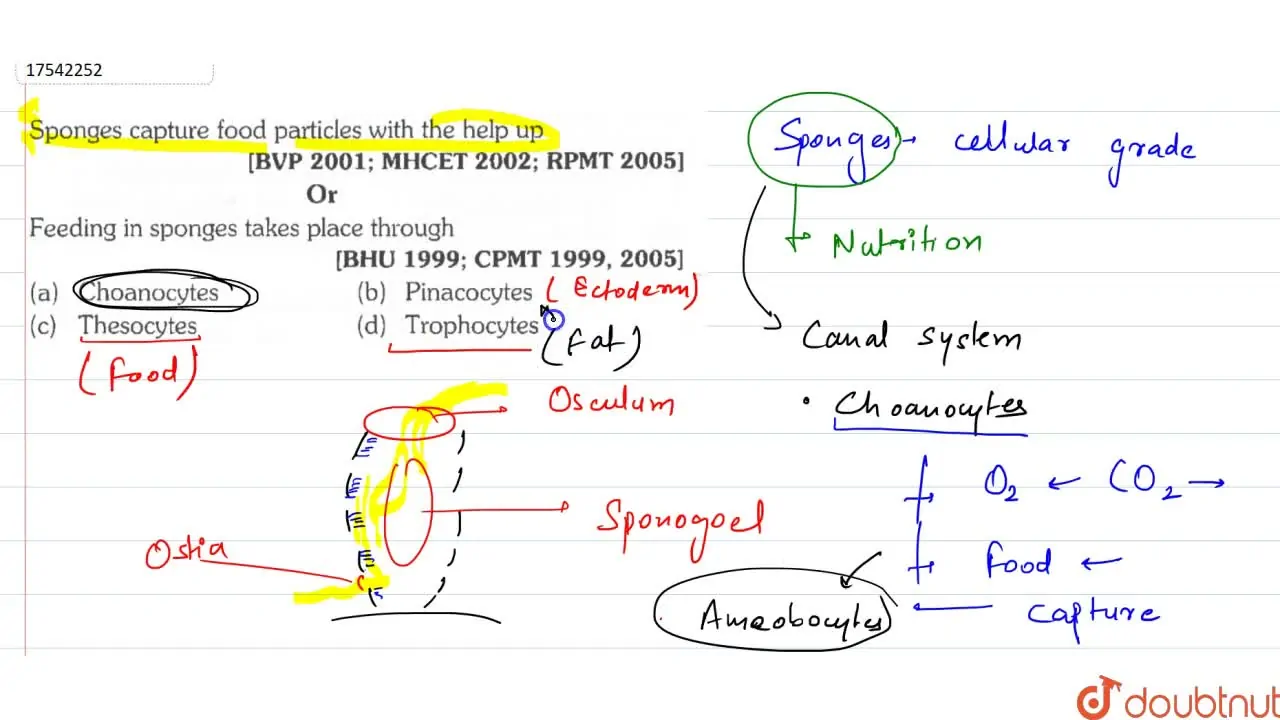 17542252
Sponges capture food particles with the help up
[BVP 2001; MHCET 2002; RPMT 2005]
Or
Feeding in sponges takes place through
[BHU 1999; CPMT 1999, 2005]
(a) Choanocytes (b) Pinacocytes (Ectoderm)
(c) Thesocytes (d) Trophocytes
(food) (Fat)
Osculum
Sponogoel
Ostia
Sponges → cellular grade
Nutrition
Canal system
• Choanocytes
O2 ← CO2 →
food ←
Amoebocytes ← capture
doubtnut